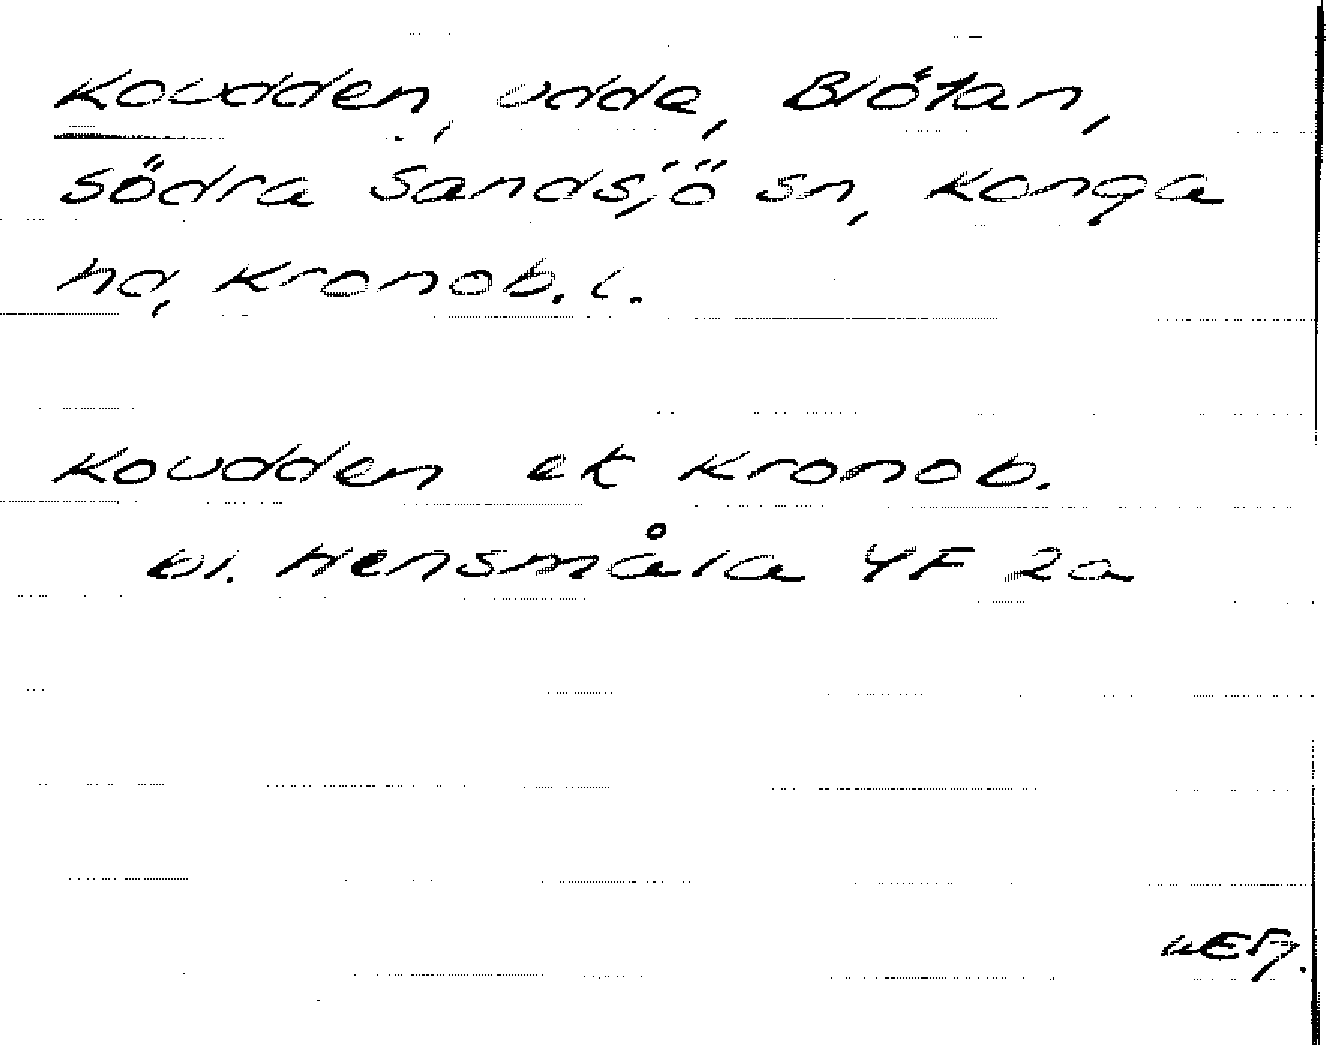 Koudden, udda, Blötan,
Södra Sandsjö sn, Konga
hd, Kronob. l.
Koudden ek Kronob.
bl. Hensmåla 4F 2a